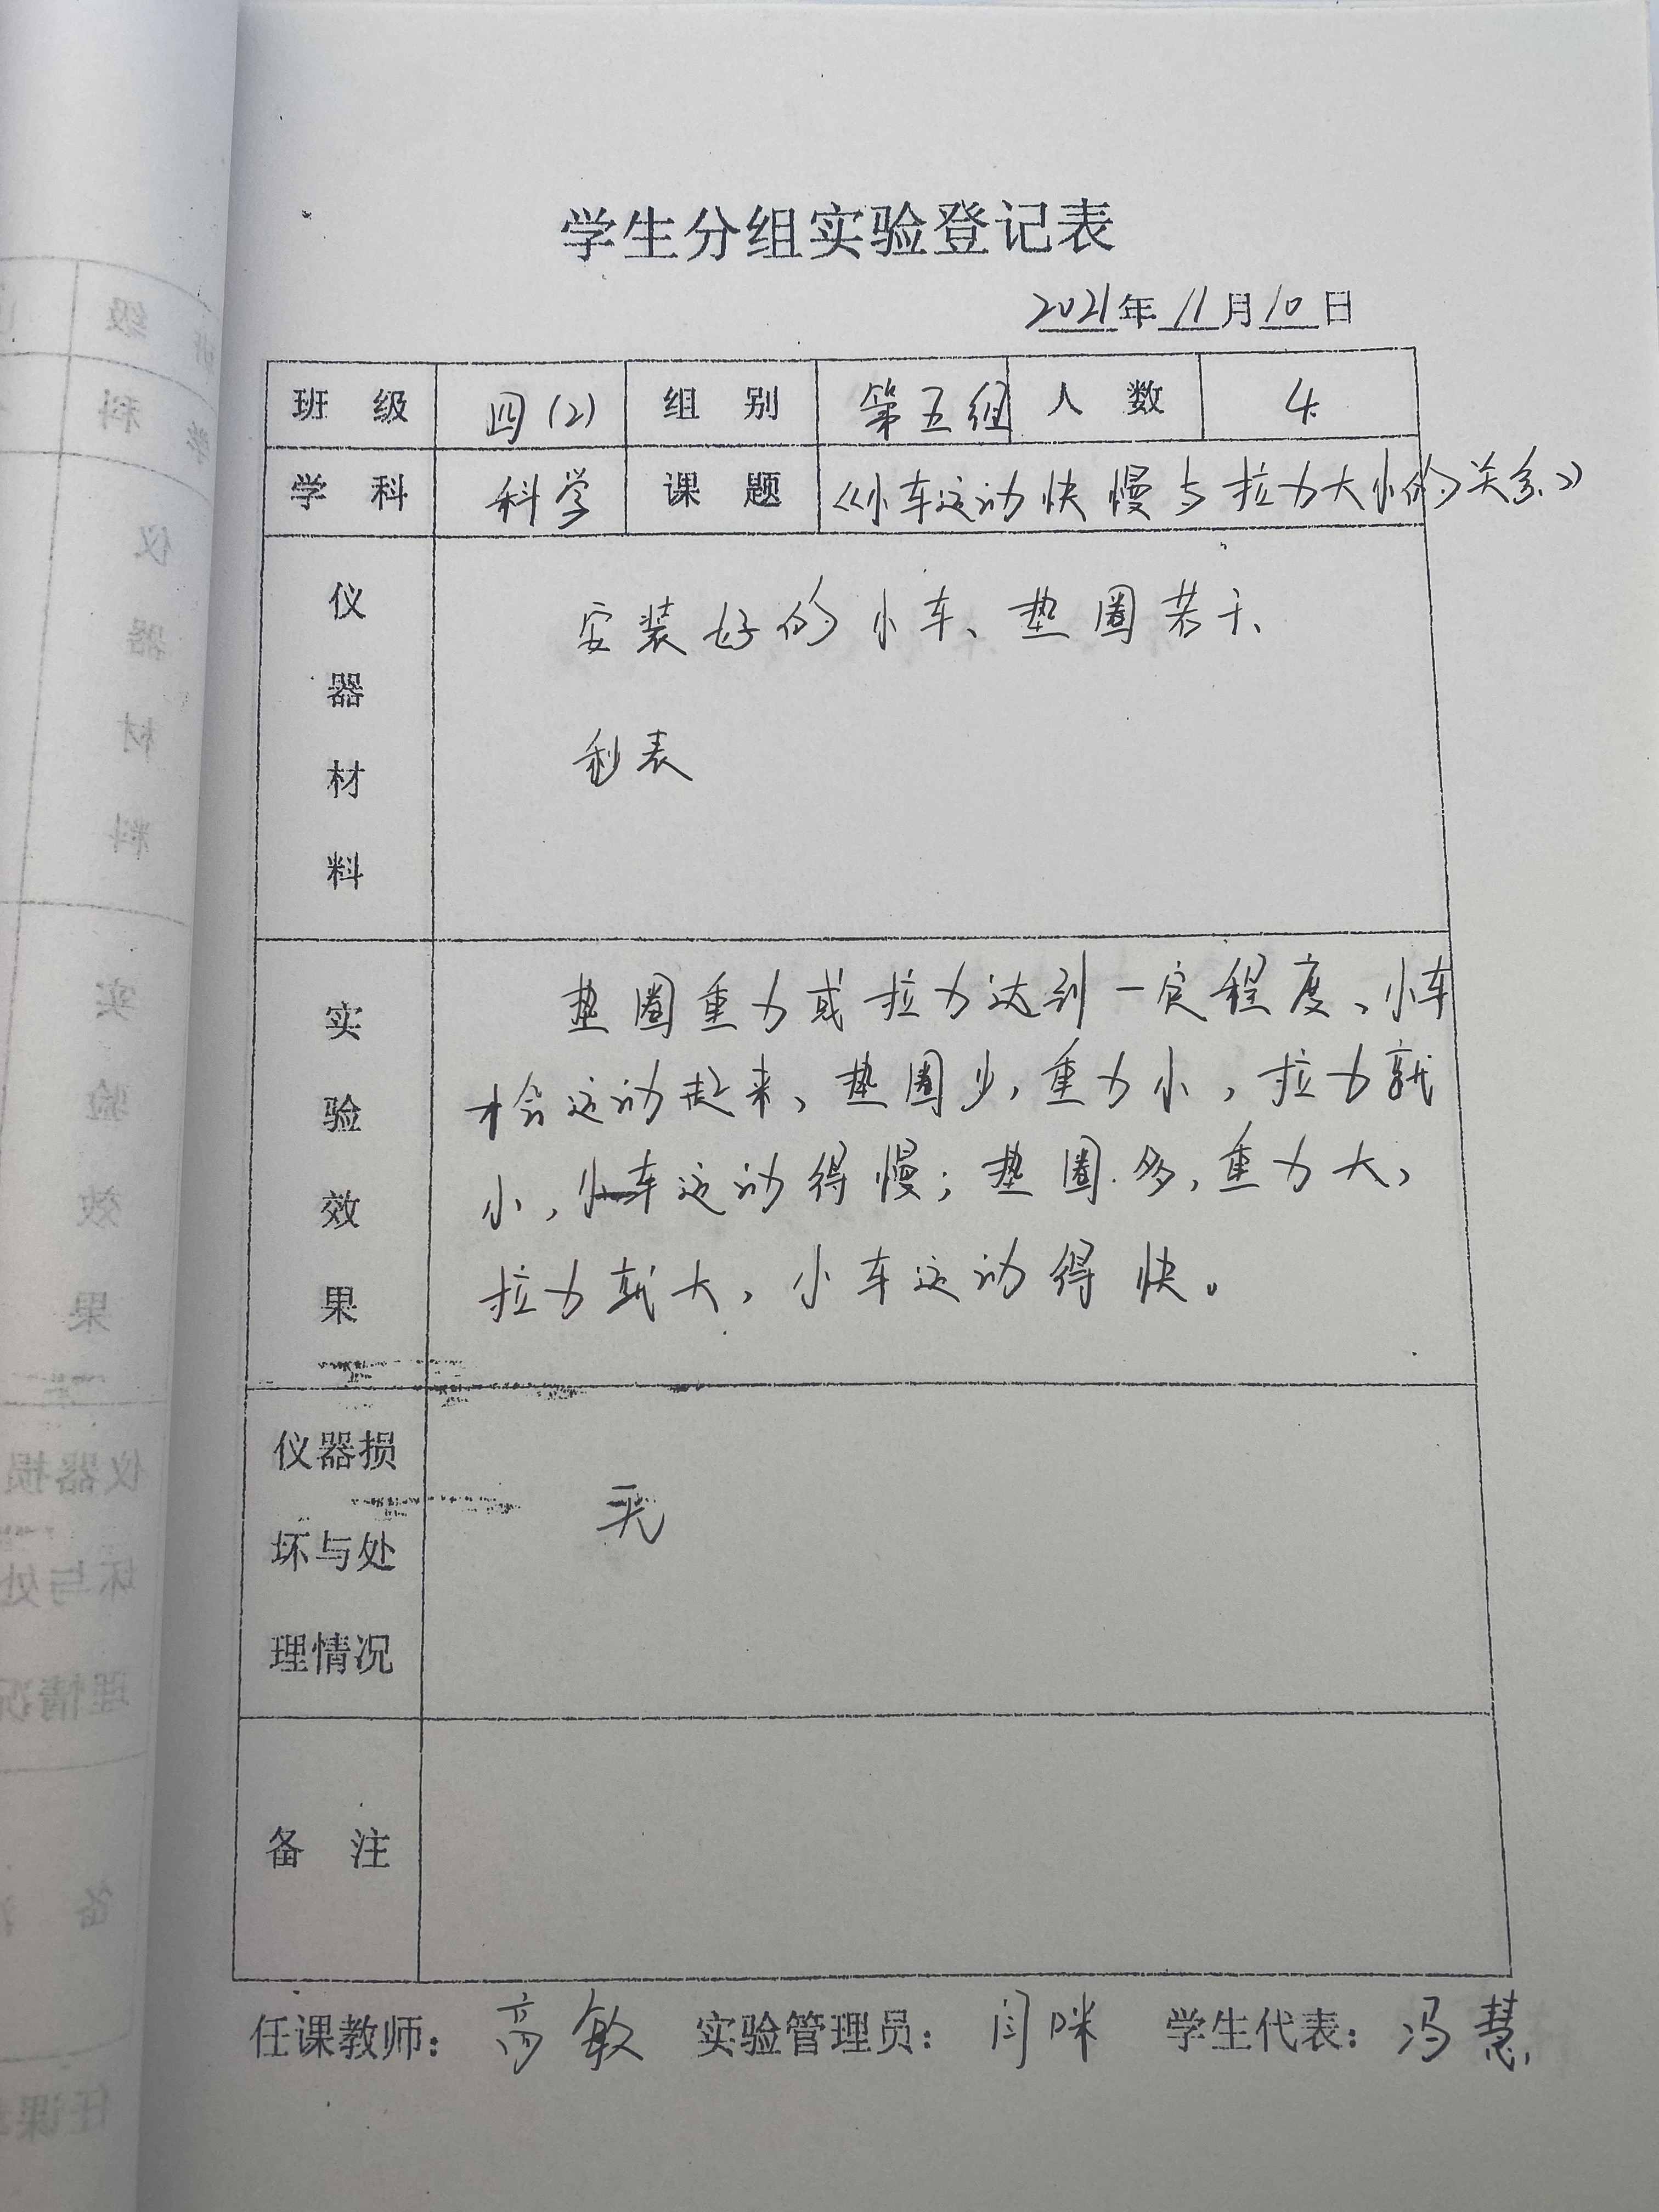 学生分组实验登记表
2021年11月10日
班级 四(2) 组别 第五组 人数 4
学科 科学 课题 《小车运动快慢与拉力大小的关系》
仪器材料
安装好的小车、垫圈若干、
秒表
实验效果
垫圈重力或拉力达到一定程度、小车
才会运动起来,垫圈少,重力小,拉力就
小,小车运动得慢;垫圈多,重力大,
拉力就大,小车运动得快。
仪器损
坏与处
理情况
无
备注
任课教师: 高敏 实验管理员: 闫咪 学生代表: 冯慧